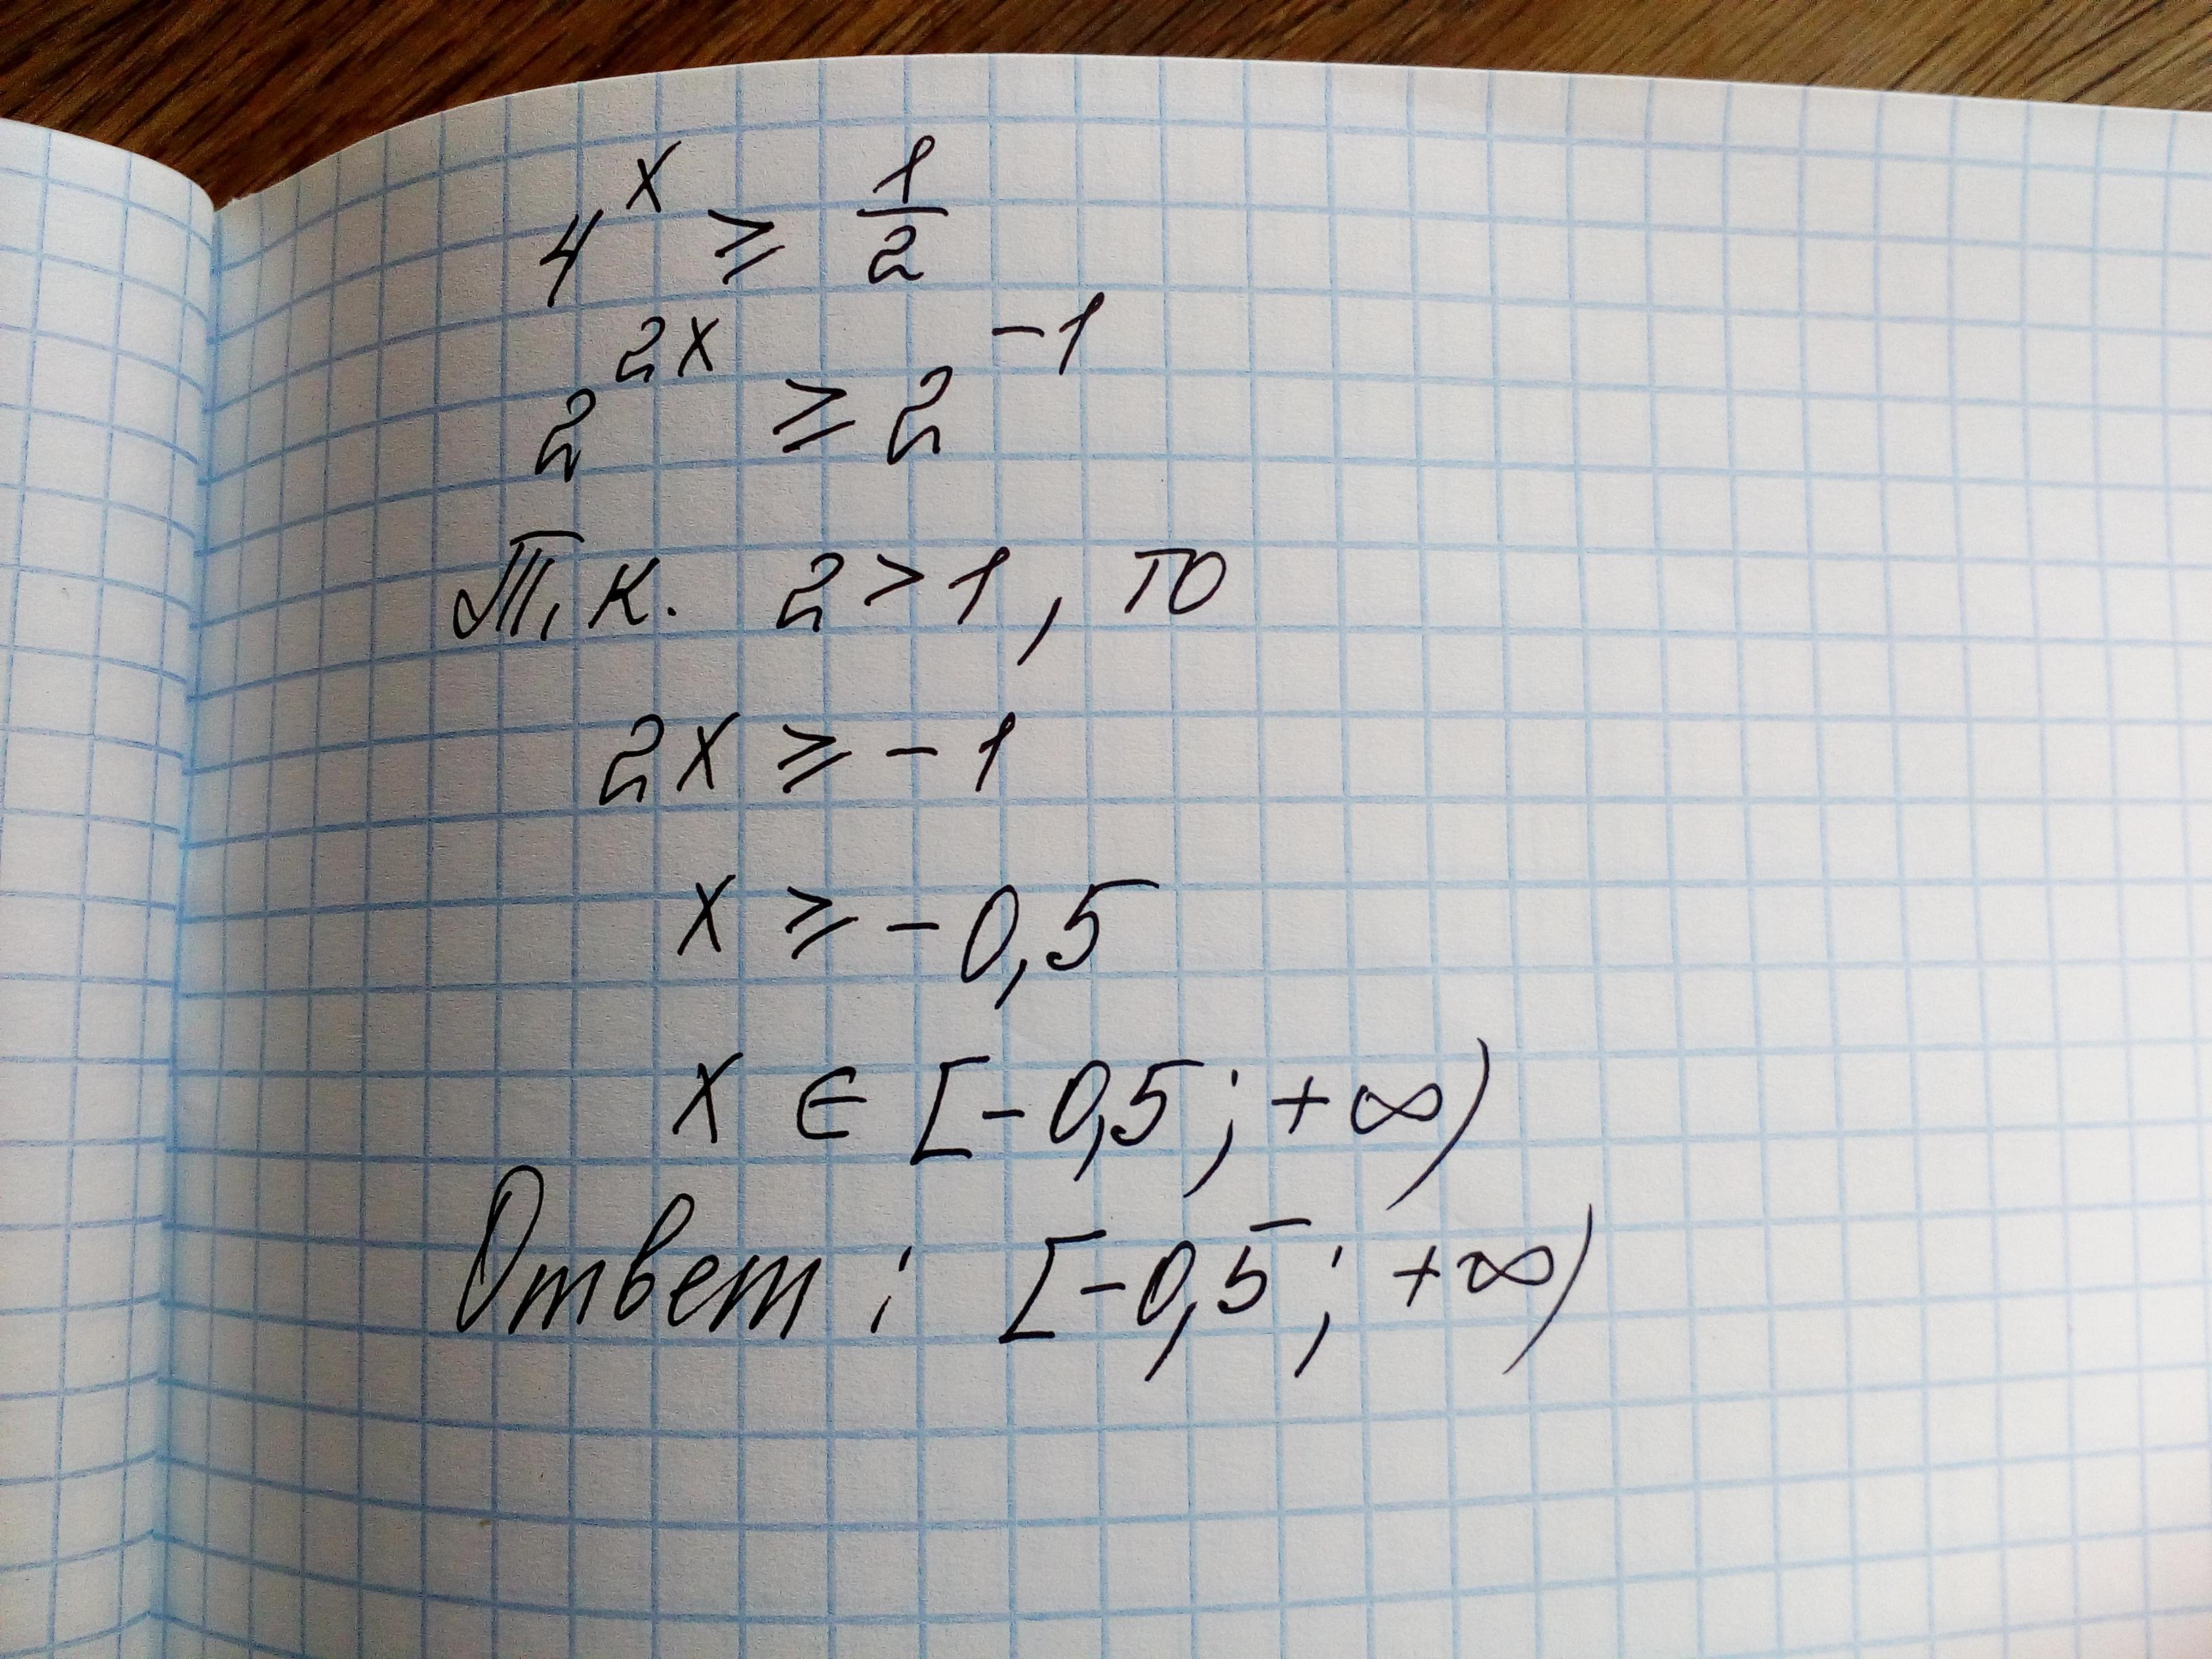 4^x ≥ 1/2
2^{2x} ≥ 2^{-1}
Т.к. 2 > 1, то
2x ≥ -1
x ≥ -0,5
x ∈ [-0,5; +∞)
Ответ: [-0,5; +∞)